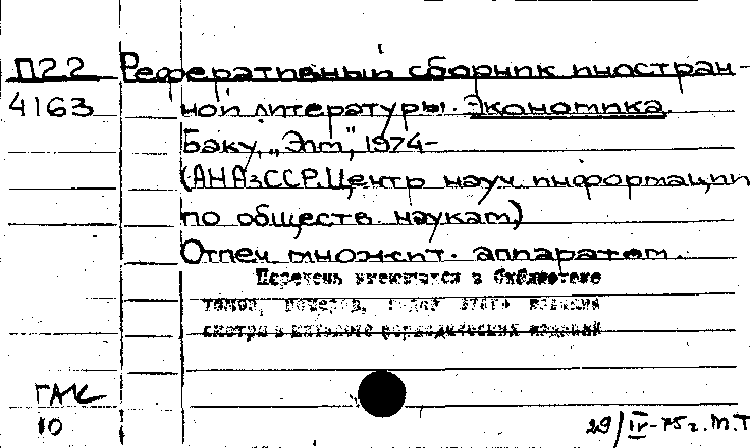 П22 Реферативный сборник иностран-
4163 ной литературы. Экономика.
Баку, „Элм", 1974-
(АН АзССР. Центр науч. информации
по обществ. наукам)
Отпеч. множит. аппаратом.
Перечень имеющихся в библиотеке
томов, номеров, годов этого издания
смотри в каталоге периодических изданий
ГАК
10
29/IV-75г. М.Т